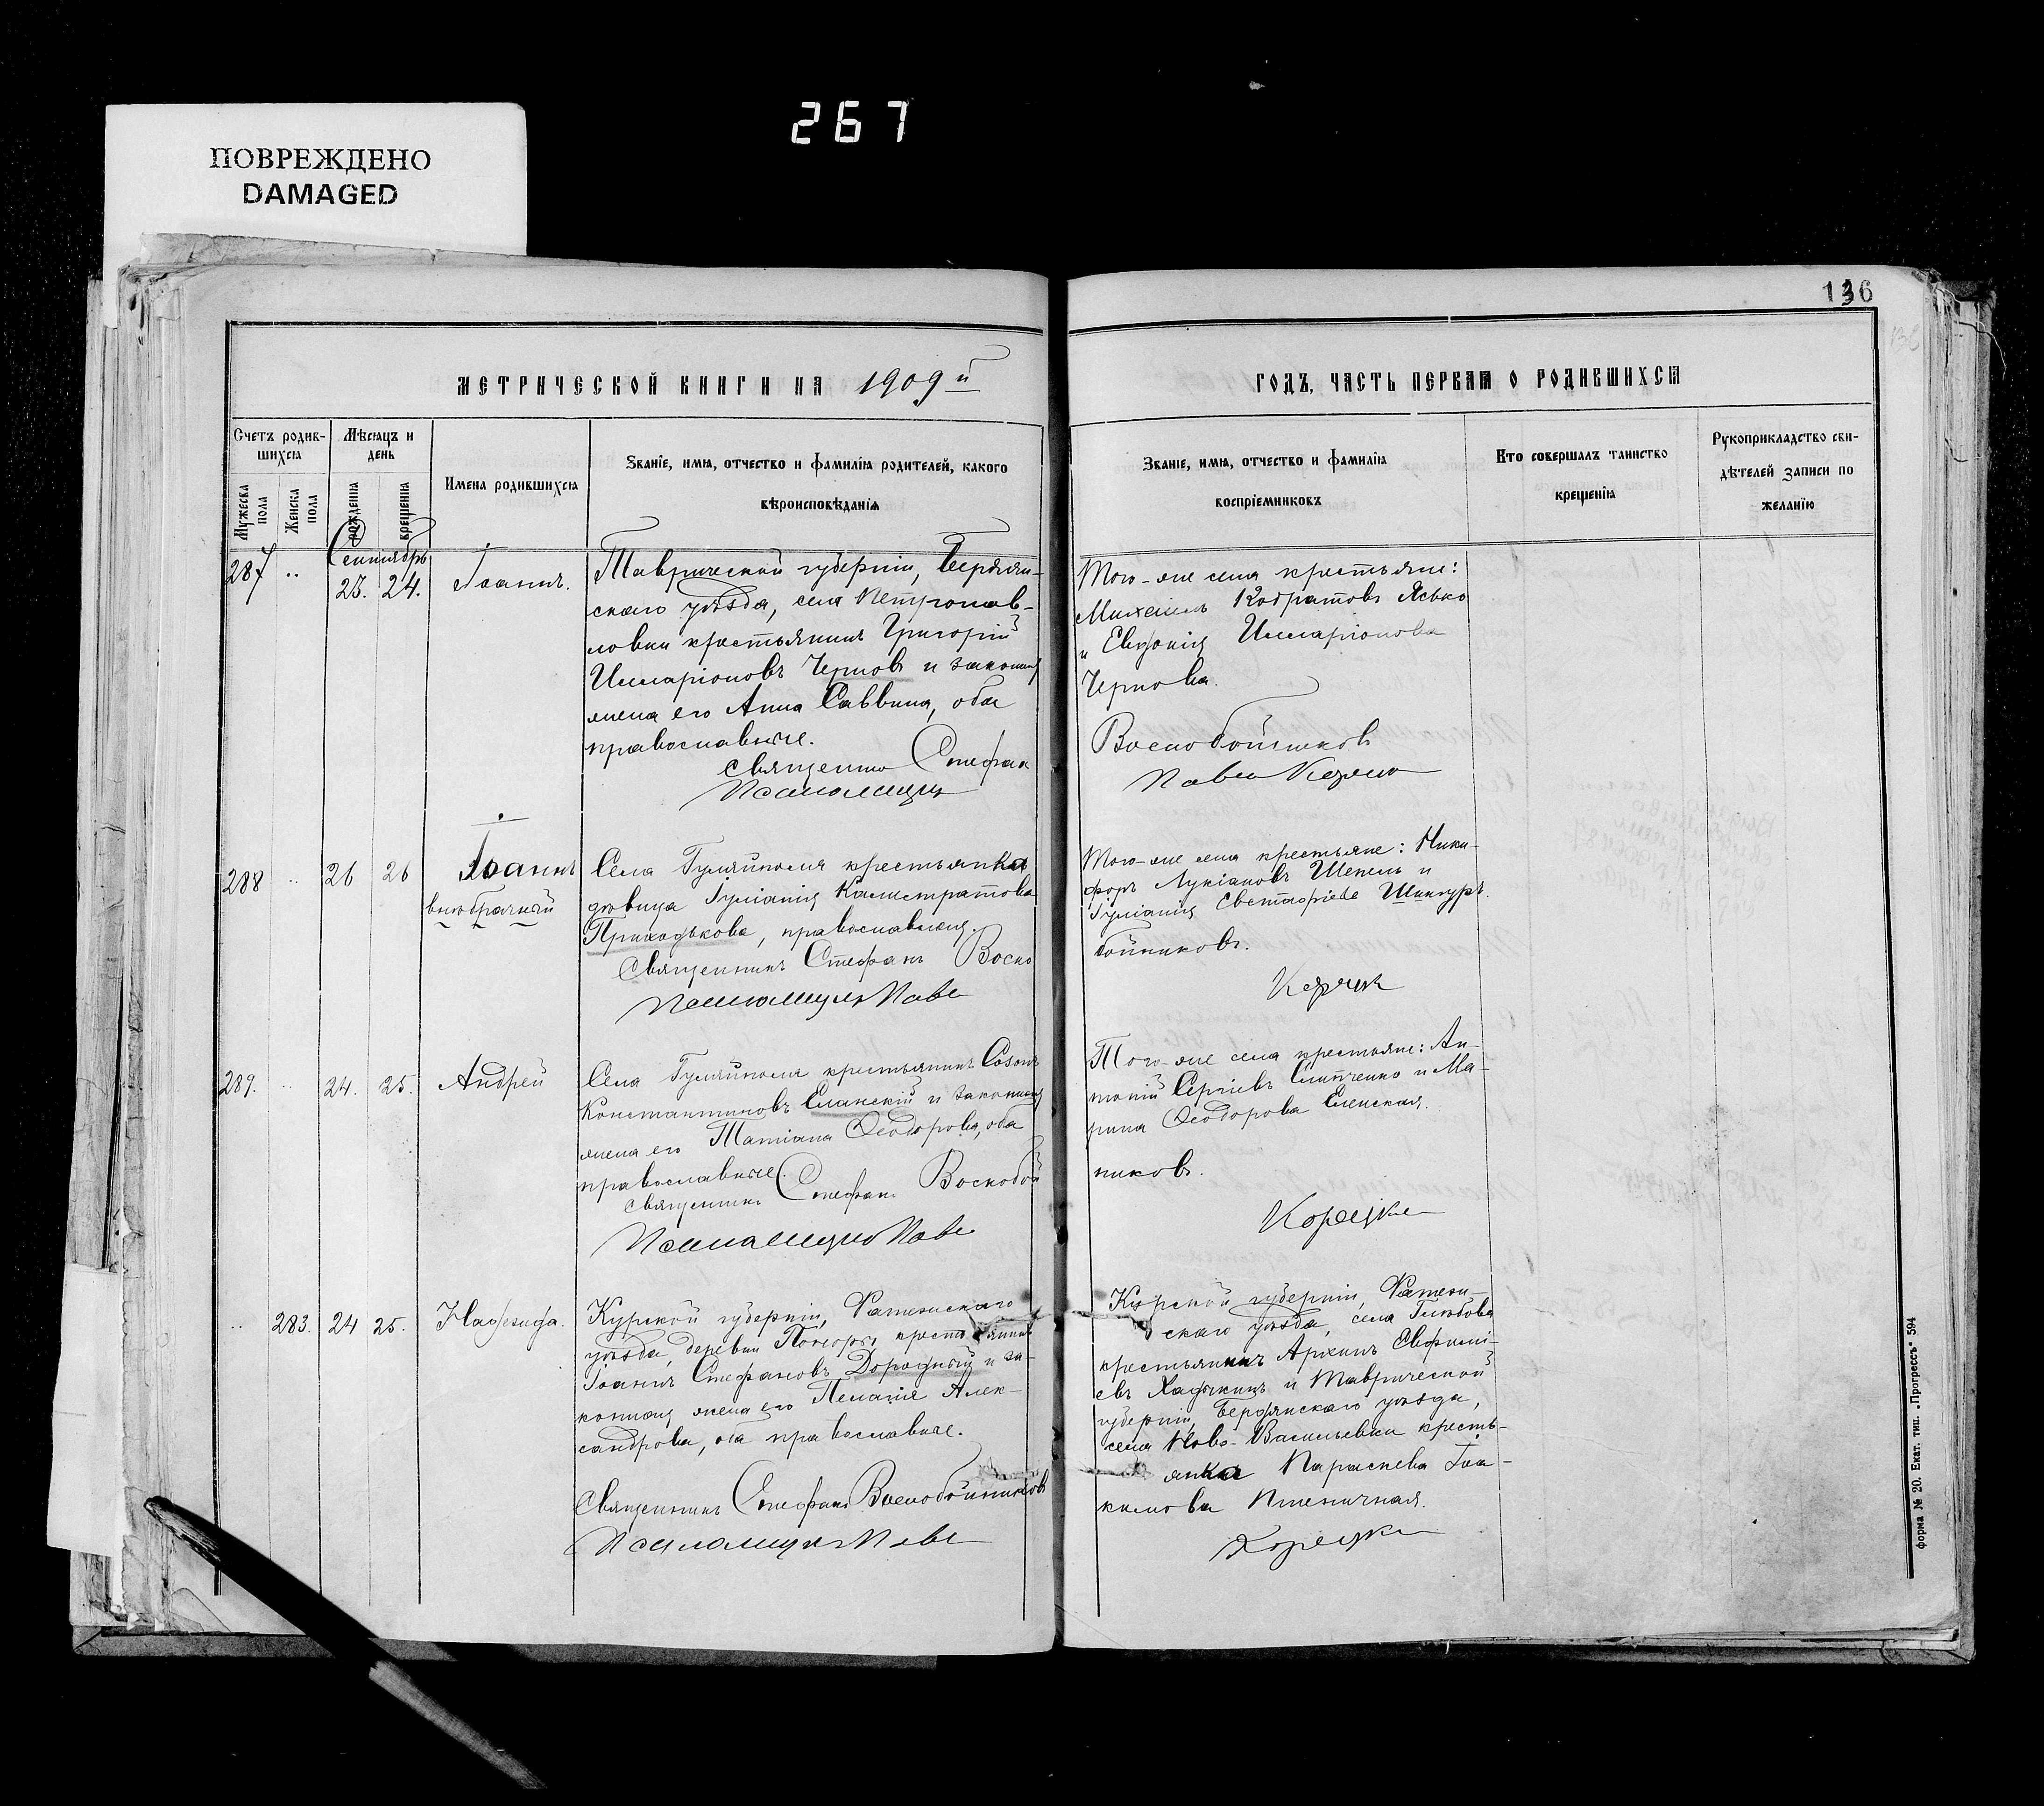 267
ПОВРЕЖДЕНО
DAMAGED
136
МЕТРИЧЕСКОЙ КНИГИ НА 1909 й
ГОДЪ, ЧАСТЬ ПЕРВАЯ О РОДИВШИХСЯ
Счетъ родив-
шихся
Мужеска пола
Женска пола
Мѣсяцъ и
день
рожденія
крещенія
Имена родившихся
Званіе, имя, отчество и фамилія родителей, какого
вѣроисповѣданія
Званіе, имя, отчество и фамилія
воспріемниковъ
Кто совершалъ таинство
крещенія
Рукоприкладство сви-
дѣтелей записи по
желанію
Сентябрь
287 " 23. 24. Іоаннъ.
Таврической губерніи, Бердян-
скаго уѣзда, села Петропав-
ловки крестьянинъ Григорій
Илларіоновъ Черновъ и законная
жена его Анна Саввина, оба
православные.
Священникъ Стефан
Псаломщик
Того-же села крестьяне:
Михаилъ Кодратовъ Ясько
и Евдокія Илларіонова
Чернова.
Воскобойников
Павел
288 " 26 26 Іоаннъ
внѣбрачный
Села Гуляйполя крестьянка
дѣвица Іуліанія Каллистратова
Приходькова, православная.
Священникъ Стефанъ Воско
Псаломщикъ Паве
Того-же села крестьяне: Ники-
форъ Лукіановъ Шепель и
Іуліанія
бойниковъ.
289. " 24. 25. Андрей
Села Гуляйполя крестьянинъ Созонъ
Константиновъ Еланскій и законная
жена его Татіана Ѳеодорова, оба
православные.
Священникъ Стефанъ Воскобой
Псаломщик Паве
Того-же села крестьяне: Ан-
тоній Сергіевъ Слипченко и Ма-
рина Ѳеодорова Еленская.
никовъ.
" 283. 24 25. Надежда.
Курской губерніи, Фатежскаго
уѣзда, деревни крестьянинъ
Іоаннъ Стефановъ Дородный и за-
конная жена его Пелагія Алек-
сандрова, оба православные.
Священникъ Стефанъ Воскобойниковъ
Псаломщикъ Паве
Курской губерніи, Фатеж-
скаго уѣзда, села Глѣбова
крестьянинъ Архипъ Евфимі-
евъ и Таврической
губерніи, Бердянскаго уѣзда,
села Ново-Васильевки кресть-
янка Параскева Іоа-
кимова Пшеничная.
форма № 20. Екат. тип. „Прогрессъ" 594